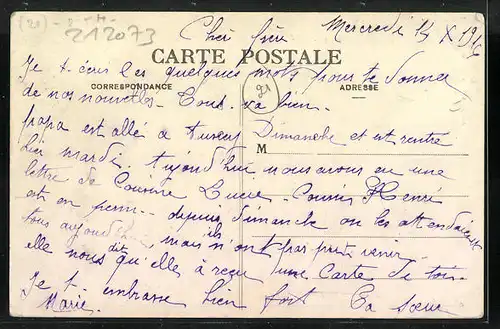 (21)
212073
Mercredi 14 X 1914
Cher frère
CARTE POSTALE
CORRESPONDANCE
ADRESSE
21
M
Je t. écris les quelques mots pour te donner
de nos nouvelles. Tout va bien.
papa est allé à Dimanche et est rentré
hier mardi. Aujourd'hui nous avons eu une
lettre de Cousine Lucie. Cousin Henri
est en perm.. depuis dimanche on les attendait
tous aujourd'hui mais ils n'ont pas pu venir.
elle nous dit qu'elle a reçu une Carte de toi.
Je t. embrasse bien fort Ta sœur
Marie.